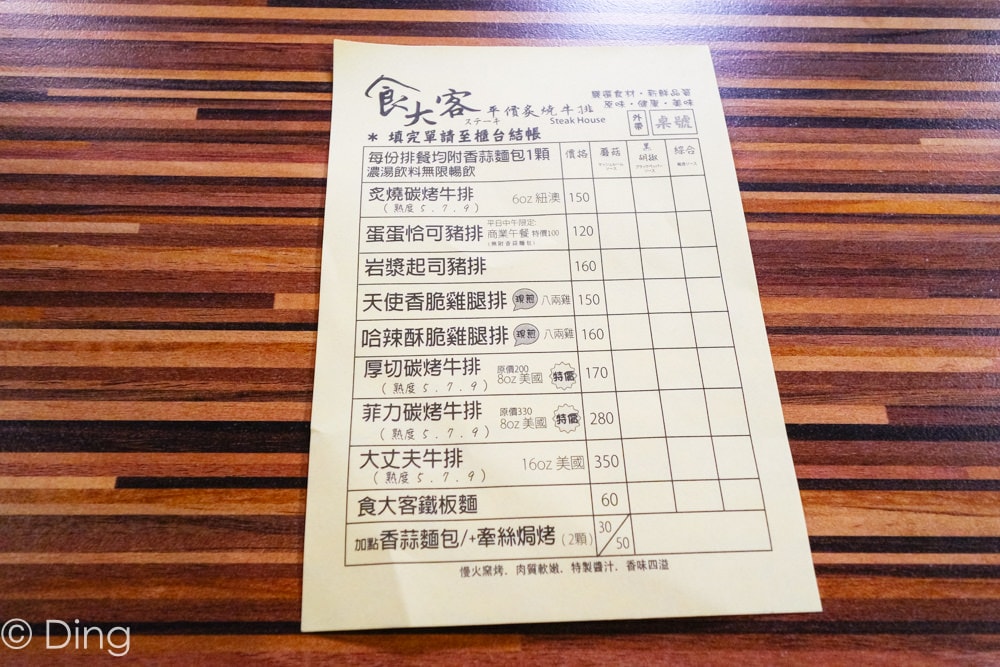 食大客 平價炙燒牛排
ステーキ Steak House
嚴選食材・新鮮品質
原味・健康・美味
＊ 填完單請至櫃台結帳
外帶 桌號
每份排餐均附香蒜麵包1顆
濃湯飲料無限暢飲
價格 蘑菇 黑胡椒 綜合
炙燒碳烤牛排 6oz 紐澳 150
(熟度 5 . 7 . 9)
蛋蛋恰可豬排 平日中午限定: 商業午餐 特價100 (無附香蒜麵包) 120
岩漿起司豬排 160
天使香脆雞腿排 現煎 八兩雞 150
哈辣酥脆雞腿排 現煎 八兩雞 160
厚切碳烤牛排 原價200 8oz 美國 特價 170
(熟度 5 . 7 . 9)
菲力碳烤牛排 原價330 8oz 美國 特價 280
(熟度 5 . 7 . 9)
大丈夫牛排 16oz 美國 350
(熟度 5 . 7 . 9)
食大客鐵板麵 60
加點 香蒜麵包/+牽絲焗烤 (2顆) 30/50
慢火窯烤. 肉質軟嫩. 特製醬汁. 香味四溢
© Ding